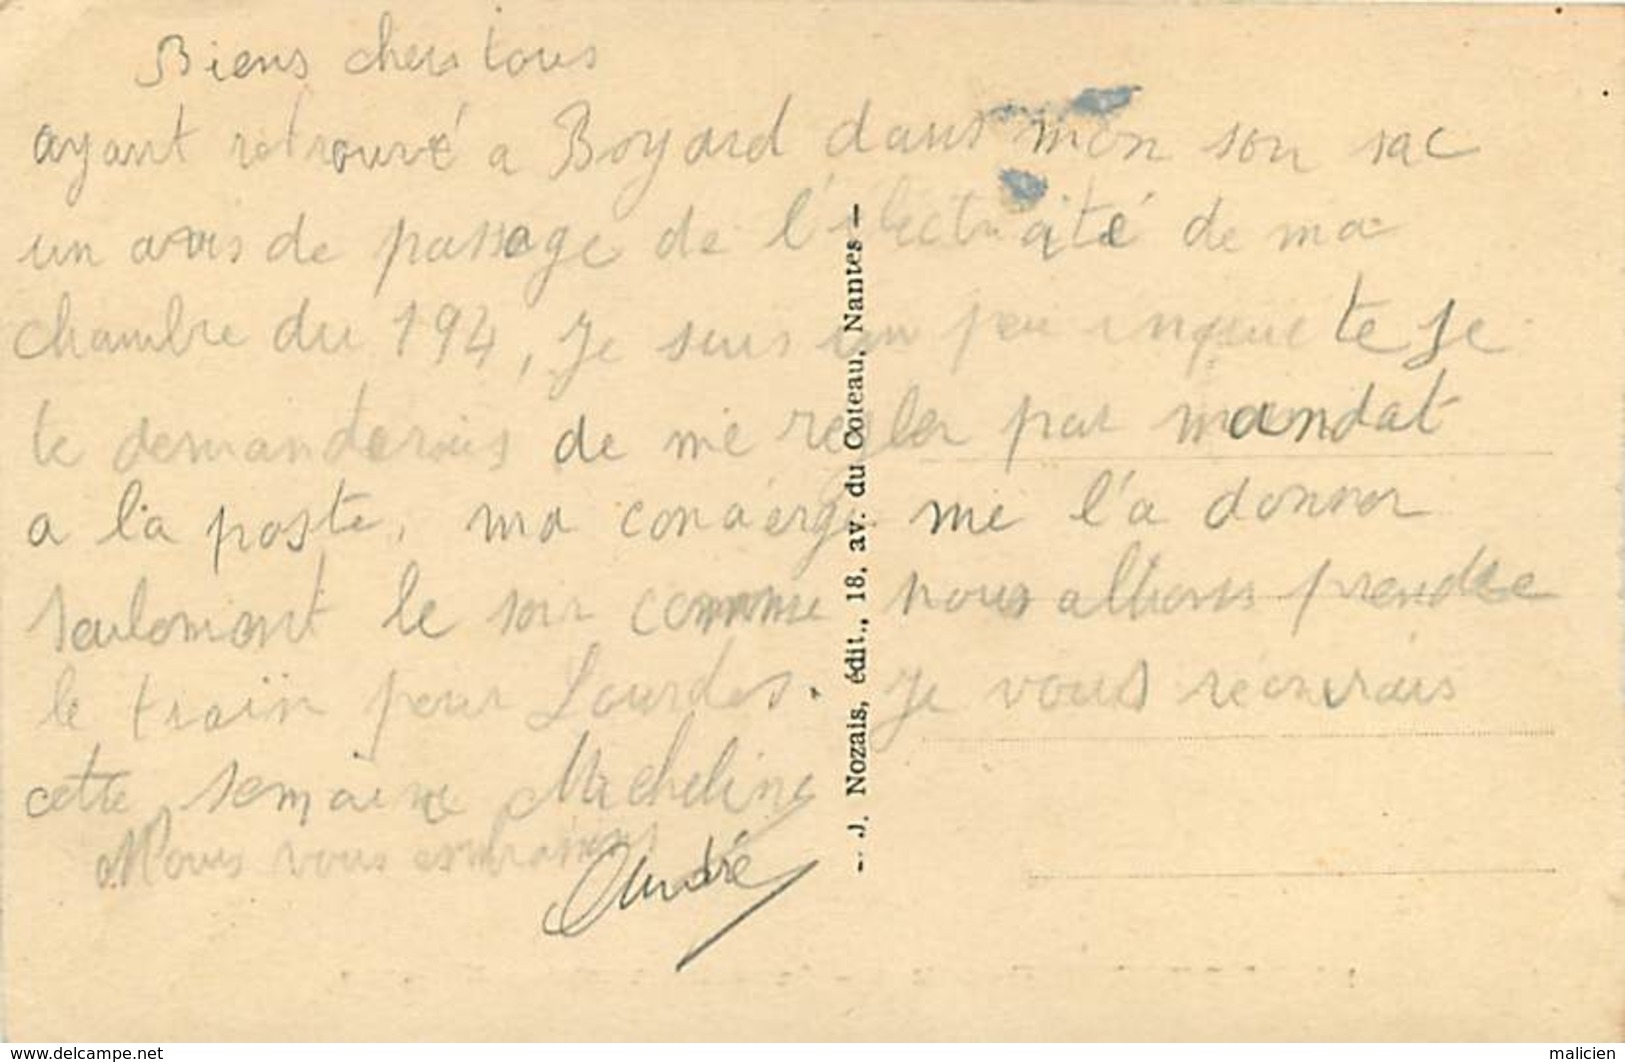 Biens chers tous
ayant retrouvé a Boyard dans mon son sac
un avis de passage de l'électricité de ma
chambre du 194, Je suis un peu inquiete Je
te demanderais de me regler par mandat
a la poste, ma concierge me l'a donner
seulement le soir comme nous allions prendre
le train pour Lourdes. Je vous récrirais
cette semaine Micheline
Nous vous embrassons
André
- J. Nozais, édit., 18, av. du Coteau, Nantes -
www.delcampe.net
malicien